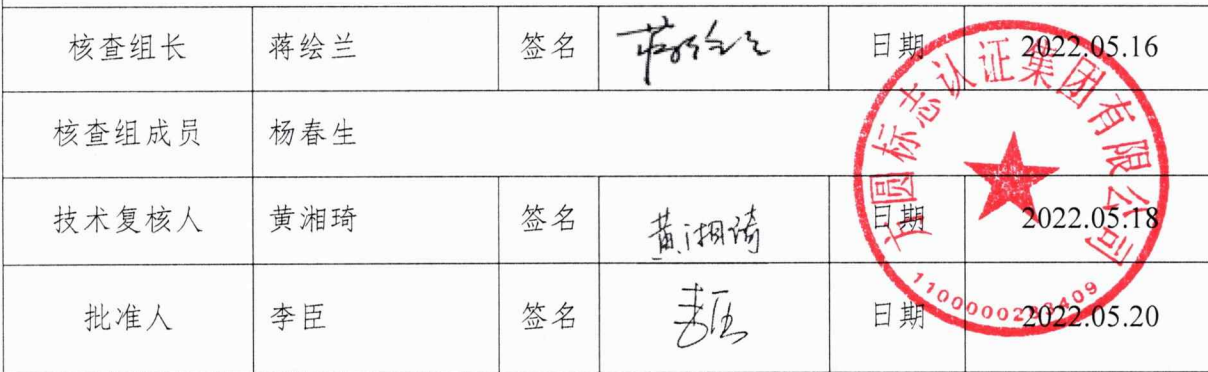 核查组长 蒋绘兰 签名 蒋绘兰 日期 2022.05.16
核查组成员 杨春生
技术复核人 黄湘琦 签名 黄湘琦 日期 2022.05.18
批准人 李臣 签名 李臣 日期 2022.05.20
方圆标志认证集团有限公司